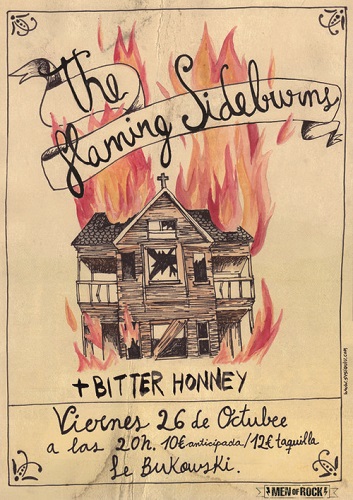 The
Flaming Sideburns
+ BITTER HONNEY
Viernes 26 de Octubre
a las 20h. 10€ anticipada/12€ taquilla
Le Bukowski.
MEN OF ROCK